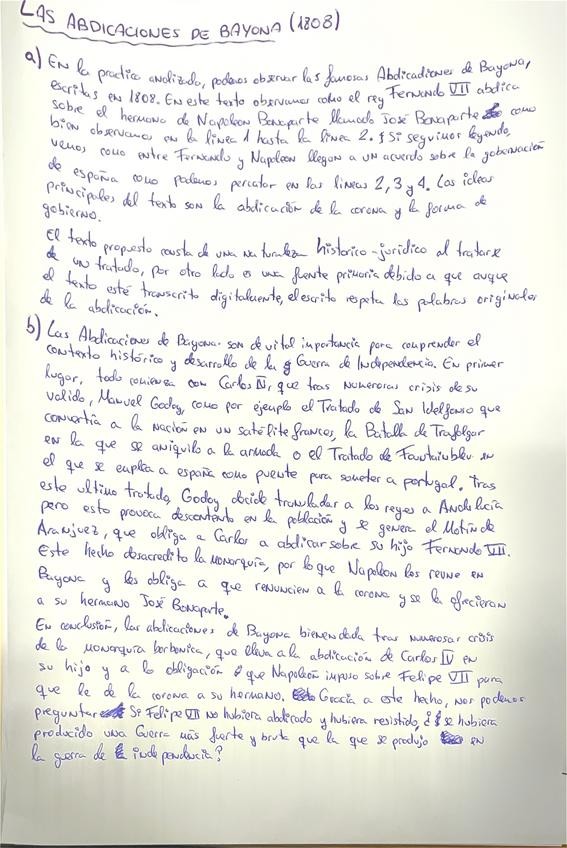 LAS ABDICACIONES DE BAYONA (1808)
a) En la practica analizada, podemos observar las famosas Abdicaciones de Bayona,
escritas en 1808. En este texto observamos como el rey Fernando VII abdica
sobre el hermano de Napoleon Bonaparte llamado José Bonaparte como
bien observamos en la linea 1 hasta la linea 2. Si seguimos leyendo,
vemos como entre Fernando y Napoleon llegan a un acuerdo sobre la gobernación
de españa como podemos percatar en las lineas 2, 3 y 4. Las ideas
principales del texto son la abdicación de la corona y la forma de
gobierno.
El texto propuesto consta de una naturaleza historico-juridico al tratarse
de un tratado, por otro lado es una fuente primaria debido a que auque
el texto esté transcrito digitalmente, el escrito respeta las palabras originales
de la abdicación.
b) Las Abdicaciones de Bayona son de vital importancia para comprender el
contexto histórico y desarrollo de la Guerra de Independencia. En primer
lugar, todo comienza con Carlos IV, que tras numerosas crisis de su
valido, Manuel Godoy, como por ejemplo el Tratado de San Idelfonso que
convertia a la nación en un satélite frances, la Batalla de Trafalgar
en la que se aniquilo a la armada o el Tratado de Fountainbleu en
el que se emplea a españa como puente para someter a portugal. Tras
este ultimo tratado, Godoy decide transladar a los reyes a Andalucía
pero esto provoca descontento en la población y se genera el Motín de
Aranjuez, que obliga a Carlos a abdicar sobre su hijo Fernando VII.
Este hecho desacredito la monarquía, por lo que Napoleon los reune en
Bayona y los obliga a que renuncien a la corona y se la ofrecieran
a su hermano José Bonaparte.
En conclusión, las abdicaciones de Bayona bienen dada tras numerosar crisis
de la monarquia borbonica, que lleva a la abdicación de Carlos IV en
su hijo y a la obligación que Napoleón impuso sobre Felipe VII para
que le de la corona a su hermano. Gracia a este hecho, nos podemos
preguntar Si Felipe VII no hubiera abdicado y hubiera resistido, ¿se hubiera
producido una Guerra más fuerte y bruta que la que se produjo en
la gerra de independencia?